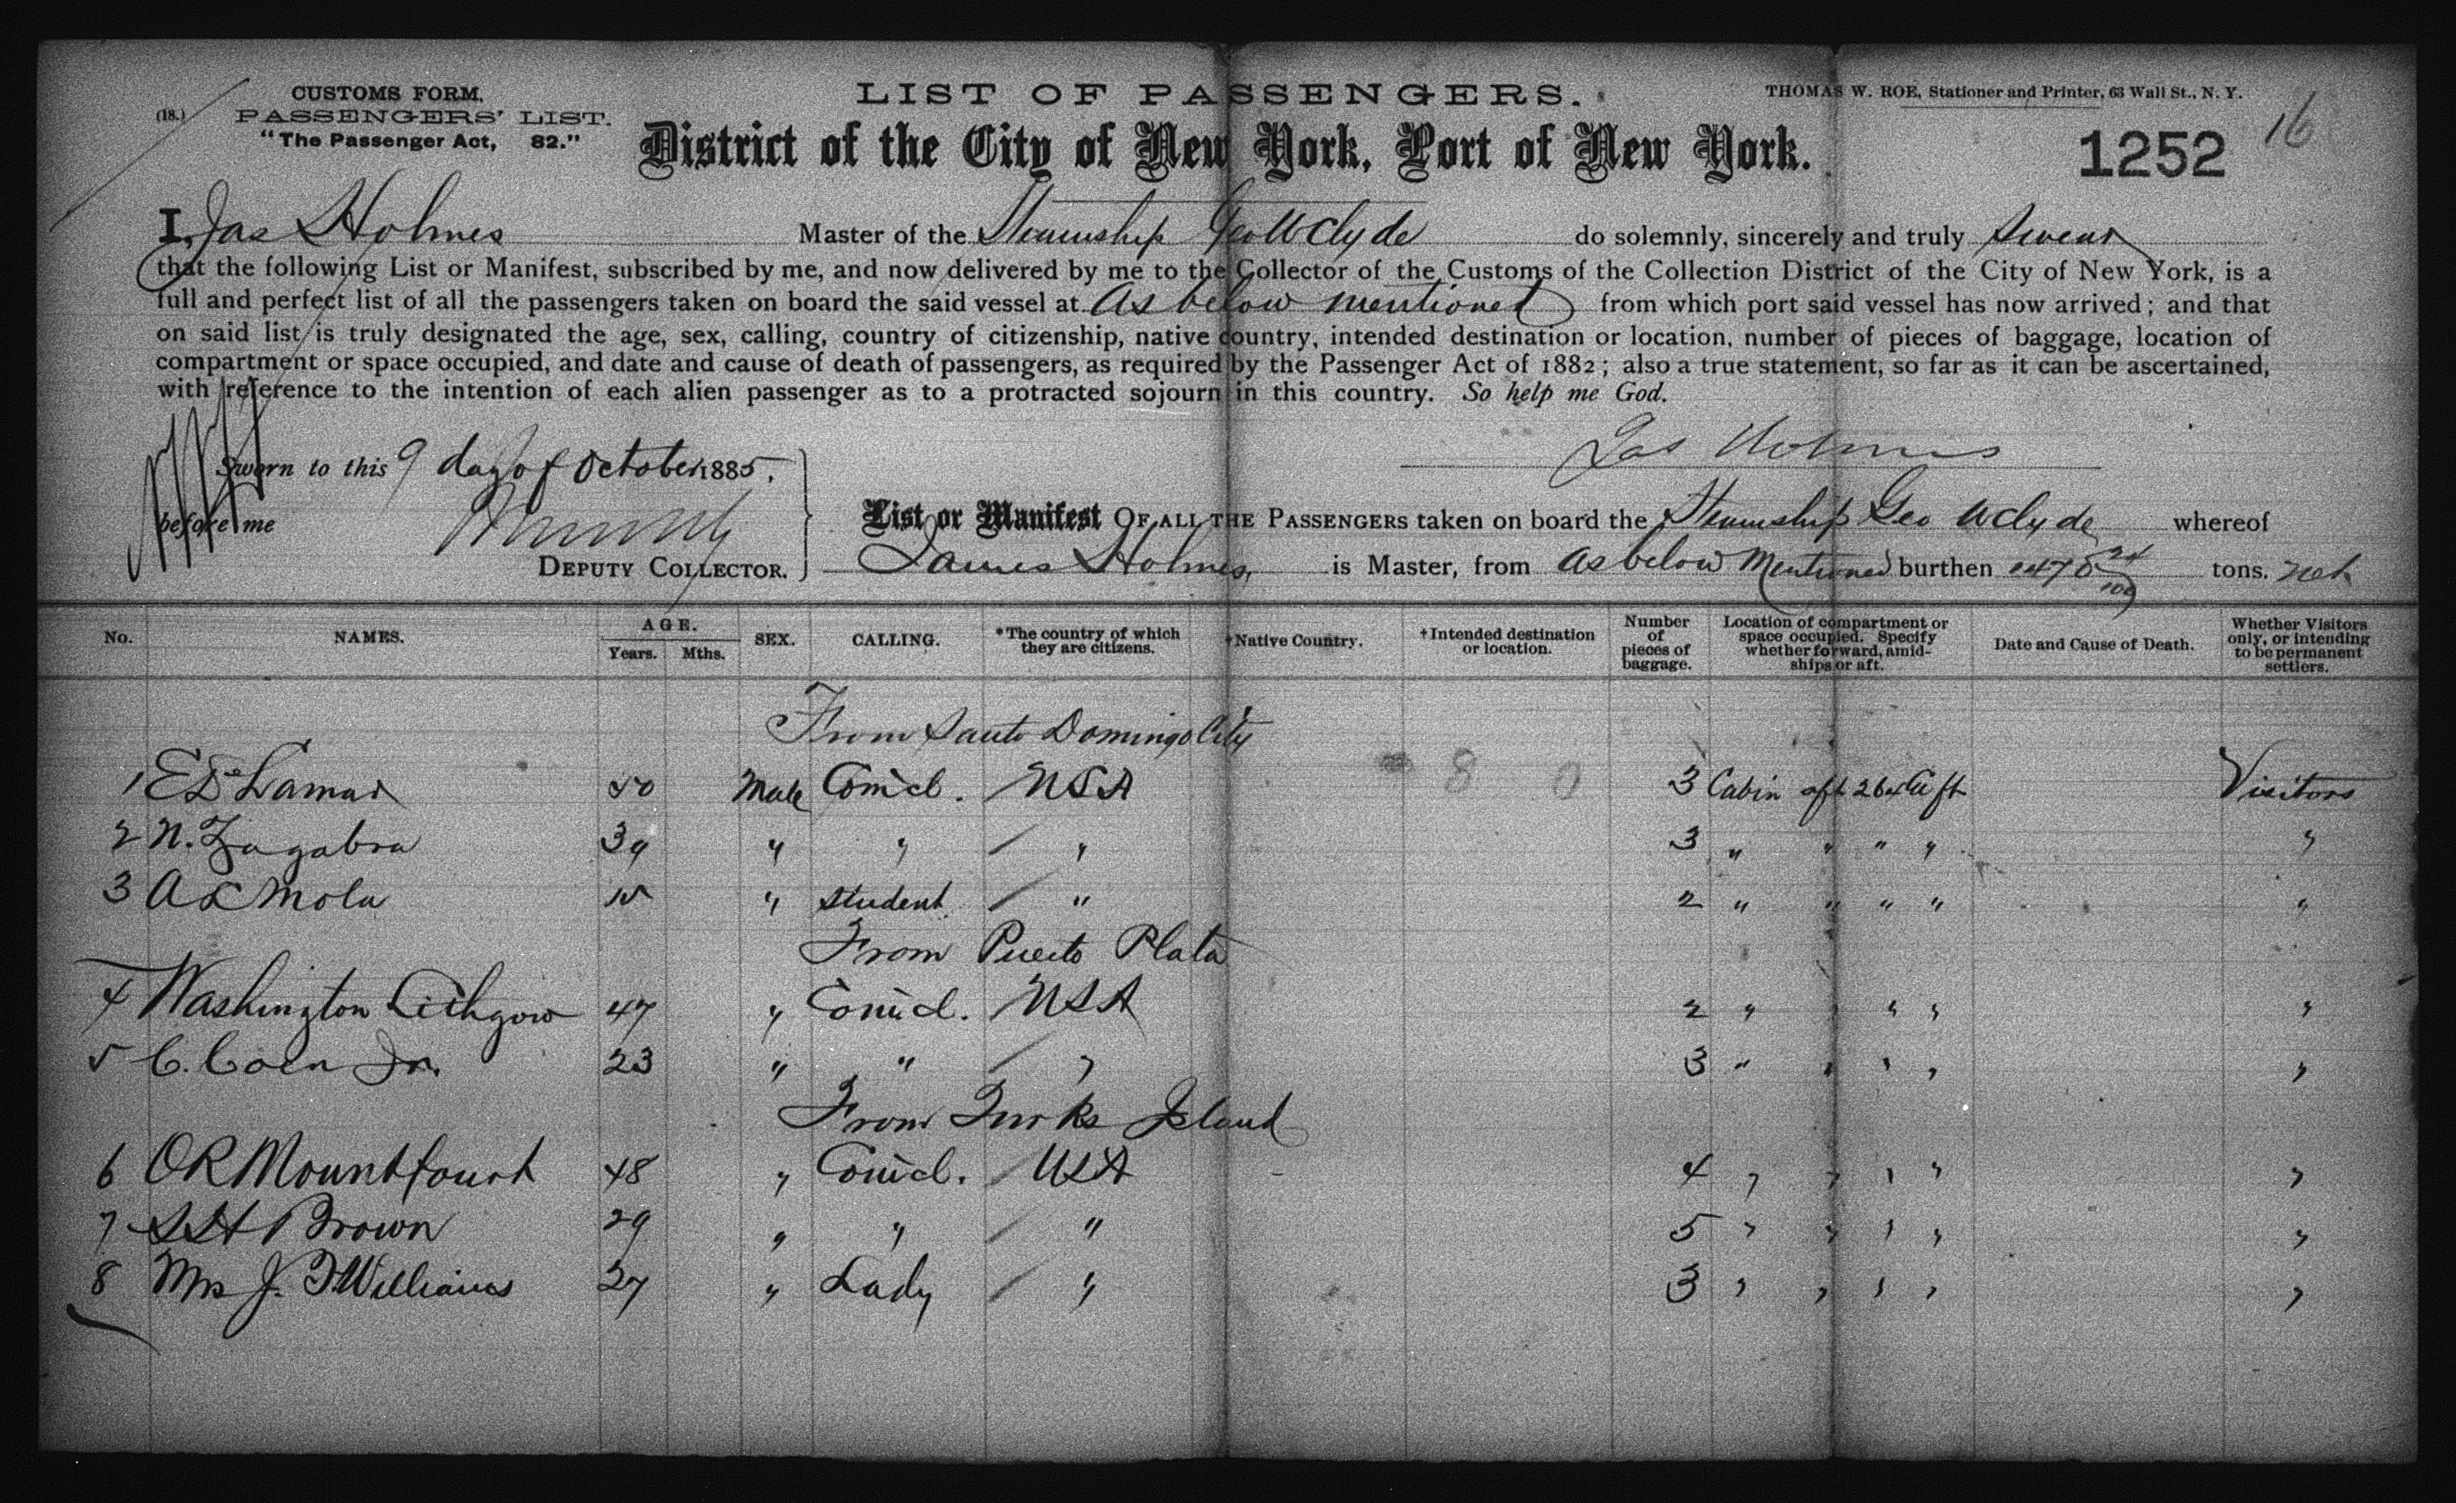 CUSTOMS FORM.
(18.) PASSENGERS' LIST.
"The Passenger Act, 82."
LIST OF PASSENGERS.
THOMAS W. ROE, Stationer and Printer, 63 Wall St., N. Y.
District of the City of New York, Port of New York.
1252
16
I, Jas Holmes Master of the Steamship Geo W Clyde do solemnly, sincerely and truly Swear
that the following List or Manifest, subscribed by me, and now delivered by me to the Collector of the Customs of the Collection District of the City of New York, is a
full and perfect list of all the passengers taken on board the said vessel at As below mentioned from which port said vessel has now arrived; and that
on said list is truly designated the age, sex, calling, country of citizenship, native country, intended destination or location, number of pieces of baggage, location of
compartment or space occupied, and date and cause of death of passengers, as required by the Passenger Act of 1882; also a true statement, so far as it can be ascertained,
with reference to the intention of each alien passenger as to a protracted sojourn in this country. So help me God.
Jas Holmes
Sworn to this 9 day of October 1885.
before me
DEPUTY COLLECTOR.
List or Manifest OF ALL THE PASSENGERS taken on board the Steamship Geo W Clyde whereof
James Holmes, is Master, from As below Mentioned burthen tons. net
No. NAMES. AGE. Years. Mths. SEX. CALLING. *The country of which they are citizens. †Native Country. †Intended destination or location. Number of pieces of baggage. Location of compartment or space occupied. Specify whether forward, amidships or aft. Date and Cause of Death. Whether Visitors only, or intending to be permanent settlers.
From Santo Domingo City
1 E De Lamar 40 Male Comcl. USA 3 Cabin aft Visitors
2 39 " " " 3 " " " " "
3 A L Mola 15 " Student " 2 " " " " "
From Puerto Plata
4 Washington Lithgow 47 " Comcl. USA 2 " " " " "
5 C. Coen Jr. 23 " " " 3 " " " " "
From Turks Island
6 O R Mountfourt 48 " Comcl. USA 4 " " " " "
7 S H Brown 29 " " " 5 " " " " "
8 Mrs J. F Williams 27 " Lady " 3 " " " " "